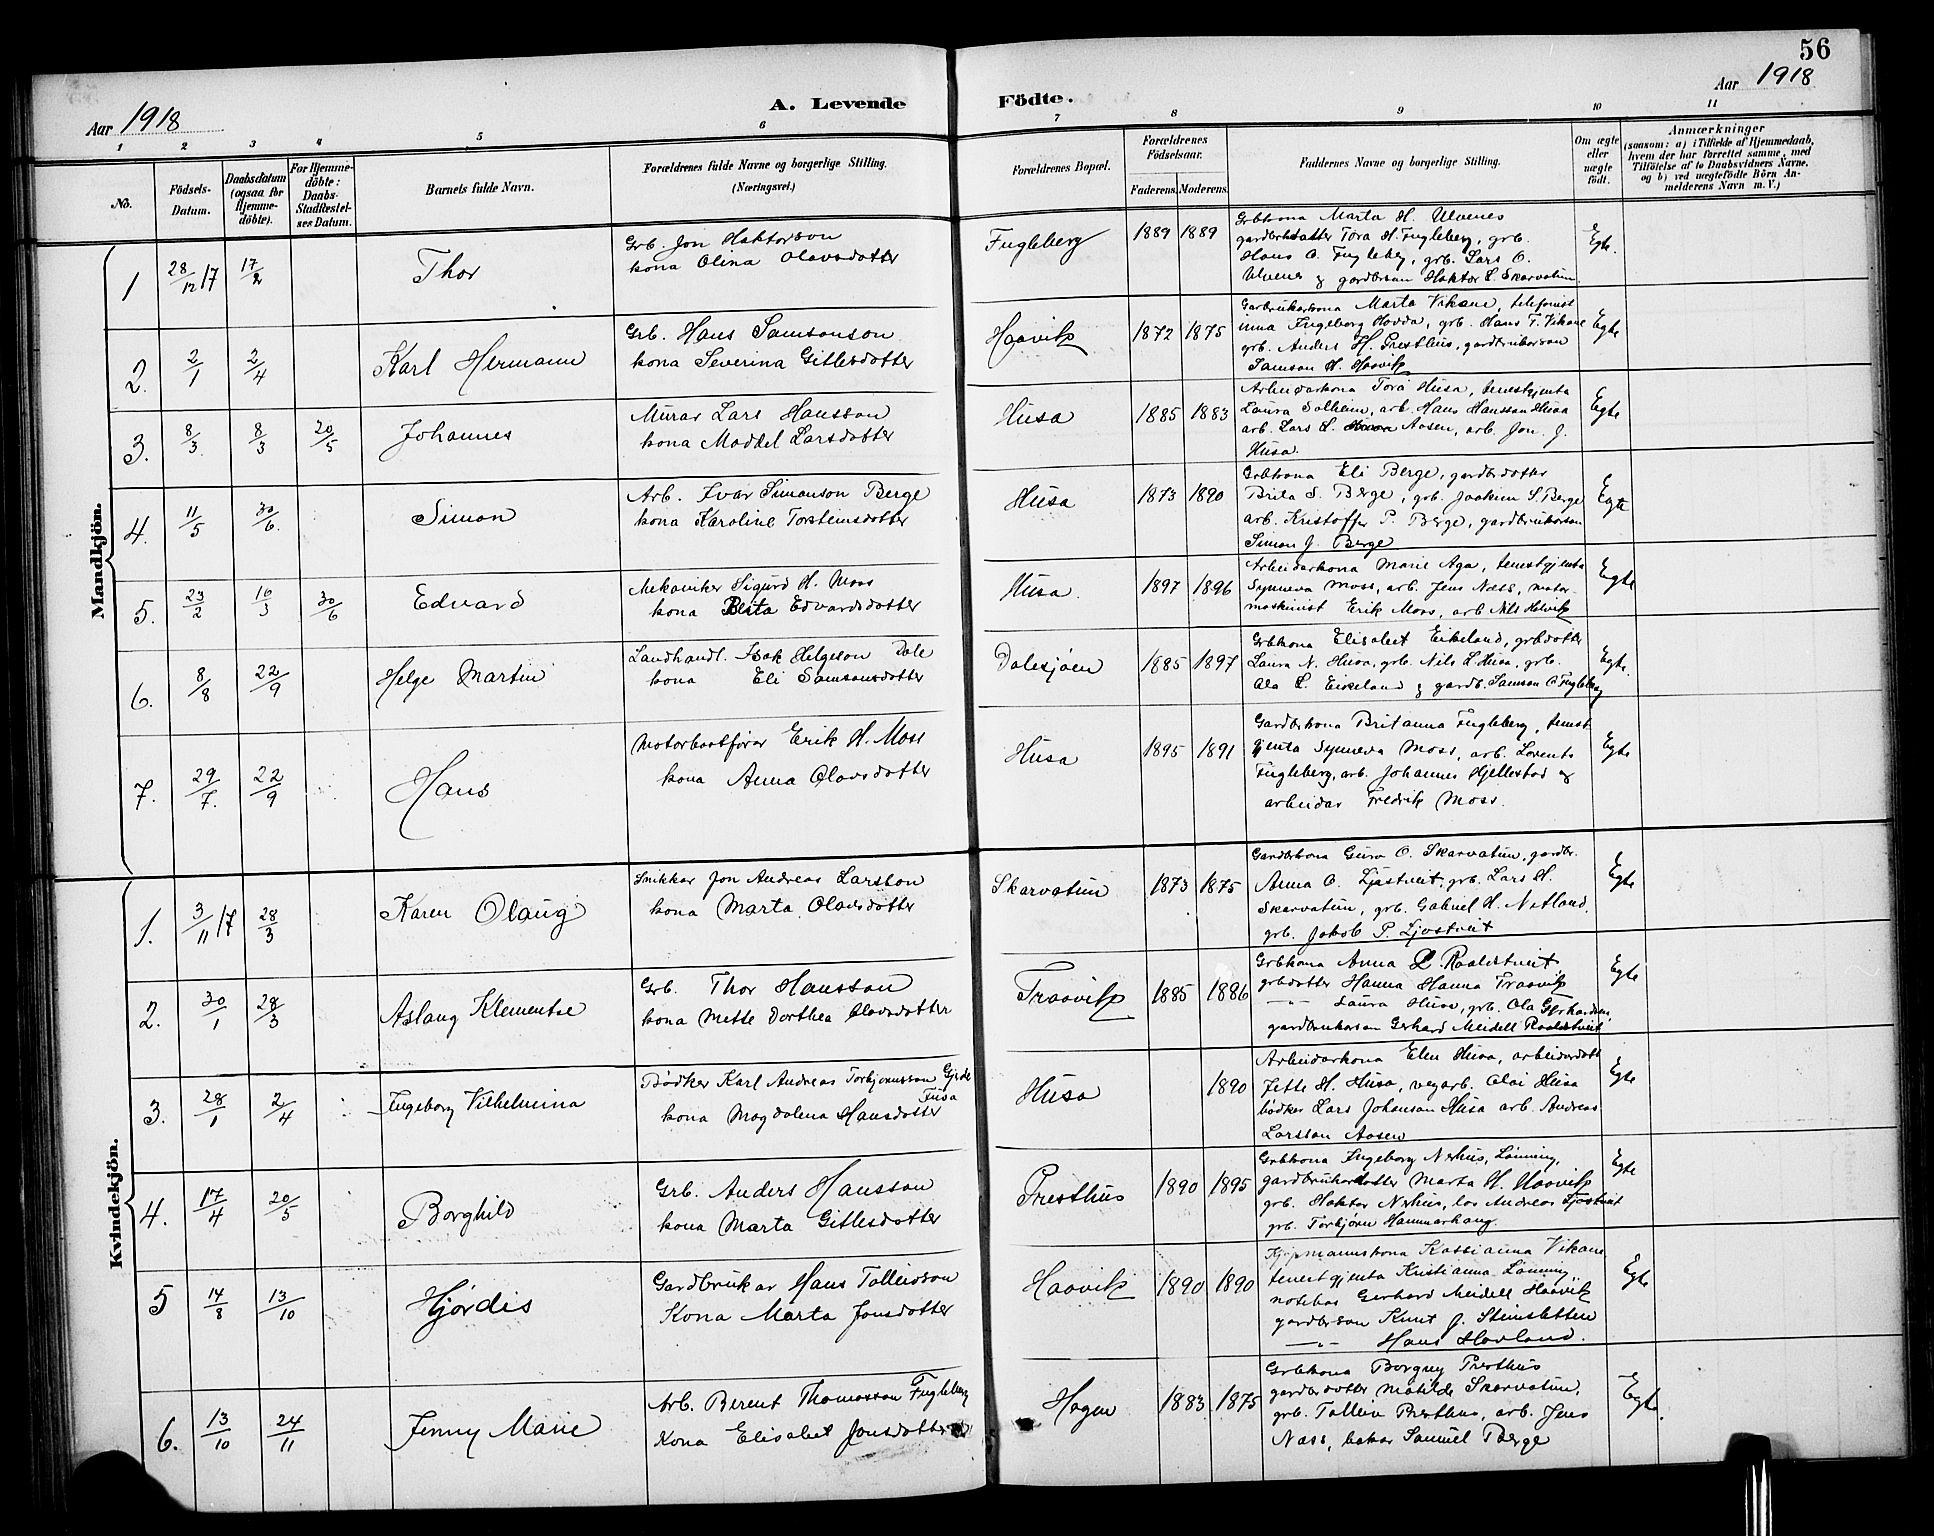 56
Aar 1918
A. Levende Födte.
Aar 1918
1 2 3 4 5 6 7 8 9 10 11
No.
Födsels-
Datum.
Daabsdatum
(ogsaa for
Hjemme-
döbte).
For Hjemme-
döbte:
Daabs-
Stadfæstel-
ses Datum.
Barnets fulde Navn.
Forældrenes fulde Navne og borgerlige Stilling.
(Næringsvei.)
Forældrenes Bopæl.
Forældrenes
Födselsaar.
Faderens. Moderens.
Faddernes Navne og borgerlige Stilling.
Om ægte
eller
uægte
födt.
Anmærkninger
(saasom: a) i Tilfælde af Hjemmedaab,
hvem der har forrettet samme, med
Tilföielse af to Daabsvidners Navne,
og b) ved uægtefödte Börn An-
melderens Navn m. V.)
Mandkjön.
1 28/12 17 17/2 Thor
Grb. Jon Haktorson
kona Olina Olavsdotter
Fugleberg 1889 1889
Grbkona Marta H. Ulvenes
gardbrdatter Tora H. Fugleberg, grb.
Hans O. Fugleberg, grb. Lars O.
Ulvenes & gardbrson Haktor L. Skarvatun
Egte.
2. 2/1 2/4 Karl Hermann
Grb. Hans Samsonson
kona Severina Gitlesdotter
Haavik 1872 1875
Garbrukarkona Marta Vikane, telefonist
inna Ingeborg Hovda, grb. Hans T. Vikane
grb. Anders H. Presthus, gardbrukarson
Samson H. Haavik
Egte
3. 8/3 8/3 20/5 Johannes
Murar Lars Hansson
kona Maddel Larsdotter
Husa 1885 1883
Arbeidarkona Tora Husa, tenestgjenta
Laura Solheim, arb. Hans Hansson Husa
arb. Lars L. Aasen, arb. Jon J.
Husa.
Egte
4. 11/5 30/6. Simon
Arb. Ivar Simonson Berge
kona Karoline Torsteinsdotter
Husa 1873 1890
Grbkona Eli Berge, gardbrdotter
Brita S. Berge, grb. Joakim S. Berge
arb. Kristoffer P. Berge, gardbrukarson
Simon J. Berge
Egte
5. 23/2 10/3 30/6 Edvard
Mekaniker Sigurd H. Moss
kona Berta Edvardsdotter
Husa. 1897 1896
Arbeidarkona Marie Aga, tenestgjenta
Synneva Moss, arb. Jens Næss, motor-
maskinist Erik Moss, arb Nils Helvik
Egte
6. 8/8 22/9 Helge Martin
Landhandl. Isak Helgeson Dale
kona Eli Samsonsdotter
Dalesjøen 1885 1897
Grbkona Elisabet Eikeland, grbdotter
Laura N. Husa, grb. Nils L. Husa, grb.
Ola L. Eikeland & gardb. Samson O. Fugleberg
Egte.
7. 29/7. 22/9 Hans
Motorbaatførar Erik H. Moss
kona Anna Olavsdotter
Husa 1895 1891
Gardbrkona Britanna Fugleberg, tenest
gjenta Synneva Moss, arb. Lorents
Fugleberg, arb. Johannes Hjellestad &
arbeidar Fredrik Moss.
Egte
Kvindekjön.
1. 3/11 17 28/3 Karen Olaug
Snikkar Jon Andreas Larsson
kona Marta Olavsdotter
Skarvatun 1873 1875
Gardbrkona Guro O. Skarvatun, gardbr.
Anna O. Ljostveit, grb. Lars H.
Skarvatun, grb. Gabriel H. Netland,
grb. Jakob P. Ljostveit
Egte
2. 30/1 28/3 Aslaug Klementse
Grb. Thor Hansson
kona Mette Dorthea Olavsdotter
Traavik 1885 1886
Grbkona Anna L. Raaldstveit
grbdotter Hanna Hanna Traavik
—"— Laura Husa, grb. Ola Gerhardsen,
gardbrukarson Gerhard Meidell Raaldstveit
Egte
3. 28/1 2/4 Ingeborg Vilhelmina
Bødker Karl Andreas Torbjørnsson Gjerde
Fusa
kona Magdalena Hansdotter
Husa 1890
Arbeidarkona Elen Husa, arbeidardott
Jette H. Husa, vegarb. Olai Husa
bødker Lars Johanson Husa arb. Andreas
Larsson Aasen
Egte
4. 17/4 20/5 Borghild
Grb. Anders Hansson
kona Marta Gitlesdotter
Presthus 1890 1895
Grbkona Ingeborg Nerhus, Lønning,
gardbrukardotter Marta H. Haavik
grb. Haktor Nerhus, los Andreas Ljostveit
grb. Torbjørn Hammarhaug.
Egte
5 14/8 13/10 Hjørdis
Gardbrukar Hans Tolleivson
Kona Marta Jonsdotter
Haavik 1890 1890
Kjøpmannskona Kassianna Vikane
tenestgjenta Kristianna Lønning
notebas Gerhard Meidell Haavik
gardbrson Knut J. Steinsletten
—"— Hans Hovland.
Egte
6. 13/10 24/11 Jenny Marie
Arb. Berent Thomasson Fugleberg
Kona Elisabet Jonsdotter
Hagen 1883 1875
Grbkona Borgny Presthus
gardbrdotter Matilde Skarvatun,
grb. Tolleiv Presthus, arb. Jens
Næss, bakar Samuel Berge
Egte.